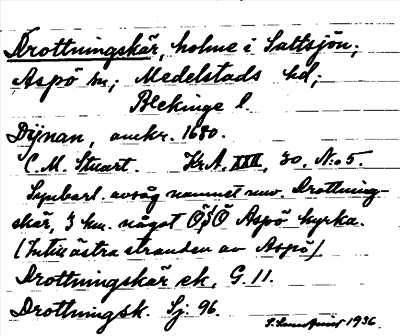 Drottningskär, holme i Saltsjön;
Aspö sn; Medelstads hd;
Blekinge l.
Dÿnan, omkr. 1680.
C. M. Stuart. Kr.A. XXII, 30, No 5.
Synbarl. avsåg namnet nuv. Drottning-
skär, 3 km. något Ö/Ö Aspö kyrka.
(Intill östra stranden av Aspö)
Drottningskär ek, G. 11.
Drottningsk. Sj. 96
1936